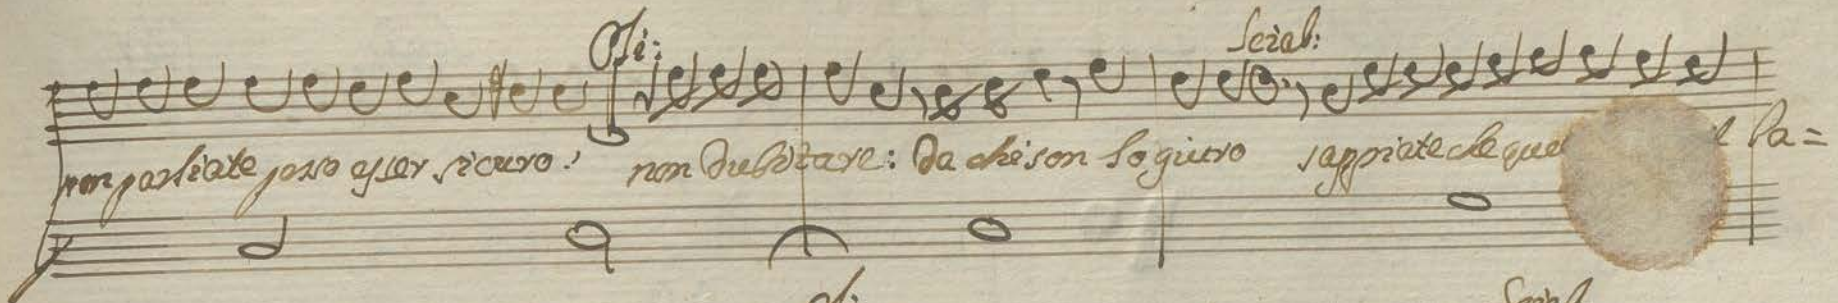 Oli: Scial:
non parliate posso esser sicuro? non dubitare: da chi son lo giuro sappiate che que il Pa=